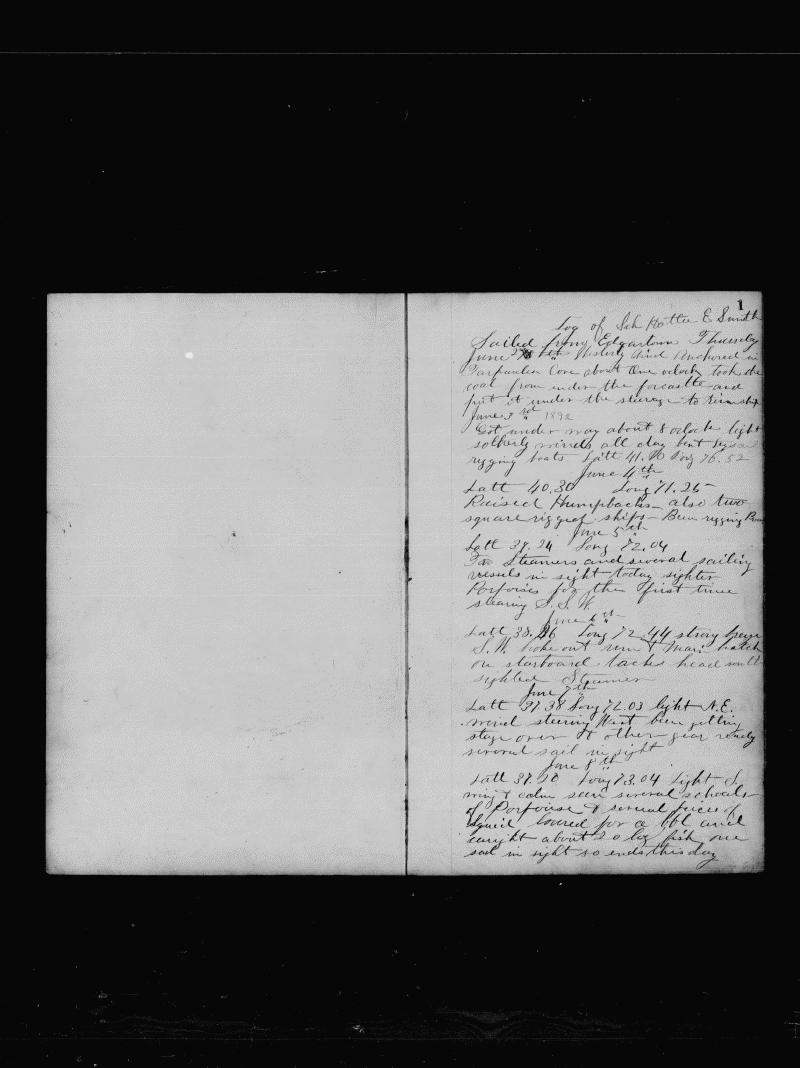 1
Log of Sch Hattie E Smith
Sailed from Edgartown Thursday
June 2nd Westerly wind Anchored in
Tarpaulin Cove about One oclock took the
coal from under the forcastle and
put it under the steerage to trim ship
June 3rd 1892
Got under way about 8 oclock light
sotherly winds all day bent
rigging boats Latt 41. Long 76.52
June 4th
Latt 40.30 Long 71.25
Raised Humpbacks also two
square rigged ships Been rigging
June 5th
Latt 39.24 Long 72.04
Two Steamers and several sailing
vessels in sight today sighter
Porpoises for the first time
stearing S.S.W.
June 6
Latt 38.26 Long 72.44 strong breze
S.W. broke out run & main hatch
on starboard tacks head south
sighted Steamer
June 7th
Latt 37.38 Long 72.03 light N.E.
wind steering West been getting
stage over & other gear ready
several sail in sight
June 8th
Latt 37.20 Long 73.04 Light S.
wing & calm seen several schools
of Porpoise & several peices of
Squid loured for a bbl and
caught about 20 fish one
sail in sight so ends this day